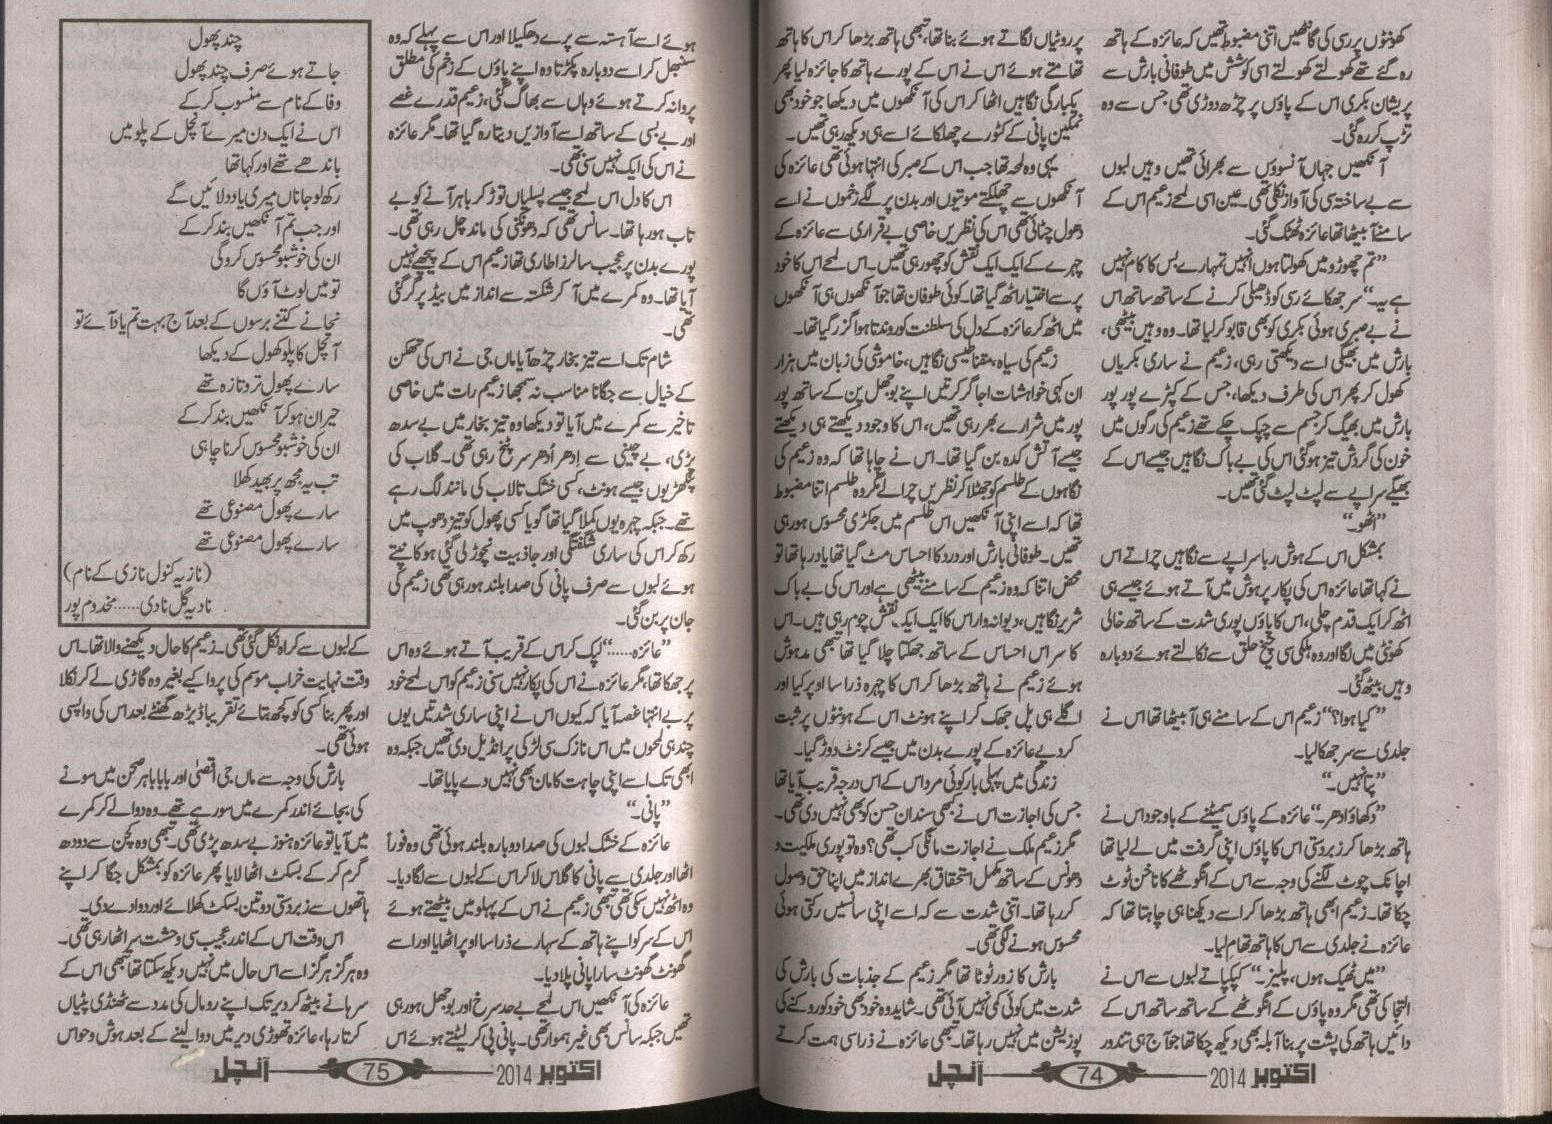 کھونٹوں پر رسی کی گانٹھیں اتنی مضبوط تھیں کہ عائزہ کے ہاتھ
رہ گئے تھے کھولتے کھولتے اسی کوشش میں طوفانی بارش سے
پریشان بکری اس کے پاؤں پر چڑھ دوڑی تھی جس سے وہ
تڑپ کر رہ گئی۔
آنکھیں جہاں آنسوؤں سے بھر آئی تھیں وہیں لبوں
سے بے ساختہ سی کی آواز نکلی تھی۔ عین اسی لمحے زعیم اس کے
سامنے آ بیٹھا تھا عائزہ ٹھٹک گئی۔
”تم چھوڑو میں کھولتا ہوں انہیں تمہارے بس کا کام نہیں
ہے یہ۔“ سر جھکائے رسی کو ڈھیلی کرنے کے ساتھ ساتھ اس
نے بے صبری ہوئی بکری کو بھی قابو کر لیا تھا۔ وہ وہیں بیٹھی،
بارش میں بھیگی اسے دیکھتی رہی، زعیم نے ساری بکریاں
کھول کر پھر اس کی طرف دیکھا، جس کے کپڑے پور پور
بارش میں بھیگ کر جسم سے چپک چکے تھے زعیم کی رگوں میں
خون کی گردش تیز ہو گئی اس کی بے باک نگاہیں جیسے اس کے
بھیگے سراپے سے لپٹ لپٹ گئی تھیں۔
”اٹھو۔“
بمشکل اس کے ہوش ربا سراپے سے نگاہیں چراتے اس
نے کہا تھا عائزہ اس کی پکار پر ہوش میں آتے ہوئے جیسے ہی
اٹھ کر ایک قدم چلی، اس کا پاؤں پوری شدت کے ساتھ خالی
کھونٹی میں لگا اور وہ ہلکی سی چیخ حلق سے نکالتے ہوئے دوبارہ
وہیں بیٹھ گئی۔
”کیا ہوا؟“ زعیم اس کے سامنے ہی آ بیٹھا تھا اس نے
جلدی سے سر جھکا لیا۔
”پتا نہیں۔“
”دکھاؤ ادھر۔“ عائزہ کے پاؤں سمیٹنے کے باوجود اس نے
ہاتھ بڑھا کر زبردستی اس کا پاؤں اپنی گرفت میں لے لیا تھا
اچانک چوٹ لگنے کی وجہ سے اس کے انگوٹھے کا ناخن ٹوٹ
چکا تھا۔ زعیم ابھی ہاتھ بڑھا کر اسے دیکھنا ہی چاہتا تھا کہ
عائزہ نے جلدی سے اس کا ہاتھ تھام لیا۔
”میں ٹھیک ہوں، پلیز۔“ کپکپاتے لبوں سے اس نے
التجا کی تھی مگر وہ پاؤں کے انگوٹھے کے ساتھ ساتھ اس کے
دائیں ہاتھ کی پشت پر بنا آبلہ بھی دیکھ چکا تھا جو آج ہی تندور
پر روٹیاں لگاتے ہوئے بنا تھا، تبھی ہاتھ بڑھا کر اس کا ہاتھ
تھامتے ہوئے اس نے اس کے پورے ہاتھ کا جائزہ لیا پھر
یکبارگی نگاہیں اٹھا کر اس کی آنکھوں میں دیکھا جو خود بھی
نمکین پانی کے کٹورے چھلکائے اسے ہی دیکھ رہی تھیں۔
یہی وہ لمحہ تھا جب اس کے صبر کی انتہا ہوئی تھی عائزہ کی
آنکھوں سے چھلکتے موتیوں اور بدن پر لگے زخموں نے اسے
دھول چٹائی تھی اس کی نظریں خاصی بے قراری سے عائزہ کے
چہرے کے ایک ایک نقش کو چھو رہی تھیں۔ اس لمحے اس کا خود
پر سے اختیار اٹھ گیا تھا۔ کوئی طوفان تھا جو آنکھوں ہی آنکھوں
میں اٹھ کر عائزہ کے دل کی سلطنت کو روندتا ہوا گزر گیا تھا۔
زعیم کی سیاہ، مقناطیسی نگاہیں، خاموشی کی زبان میں ہزار
ان کہی خواہشات اجاگر کرتیں اپنے بوجھل پن کے ساتھ پور
پور میں شرارے بھر رہی تھیں، اس کا وجود دیکھتے ہی دیکھتے
جیسے آتش کدہ بن گیا تھا۔ اس نے چاہا تھا کہ وہ زعیم کی
نگاہوں کے طلسم کو جھٹلا کر نظریں چرا لے مگر وہ طلسم اتنا مضبوط
تھا کہ اسے اپنی آنکھیں اس طلسم میں جکڑی محسوس ہو رہی
تھیں۔ طوفانی بارش اور درد کا احساس مٹ گیا تھا یاد رہا تھا تو
محض اتنا کہ وہ زعیم کے سامنے بیٹھی ہے اور اس کی بے باک
شریر نگاہیں، دیوانہ وار اس کا ایک ایک نقش چوم رہی ہیں۔ اس
کا سر اس احساس کے ساتھ جھکتا چلا گیا تھا تبھی مدہوش
ہوئے زعیم نے ہاتھ بڑھا کر اس کا چہرہ ذرا سا اوپر کیا اور
اگلے ہی پل جھک کر اپنے ہونٹ اس کے ہونٹوں پر ثبت
کر دیے عائزہ کے پورے بدن میں جیسے کرنٹ دوڑ گیا۔
زندگی میں پہلی بار کوئی مرد اس کے اس درجہ قریب آیا تھا
جس کی اجازت اس نے کبھی سندان حسن کو بھی نہیں دی تھی۔
مگر زعیم ملک نے اجازت مانگی کب تھی؟ وہ تو پوری ملکیت و
دھونس کے ساتھ مکمل استحقاق بھرے انداز میں اپنا حق وصول
کر رہا تھا۔ اتنی شدت سے کہ اسے اپنی سانسیں رکتی ہوئی
محسوس ہونے لگی تھی۔
بارش کا زور ٹوٹا تھا مگر زعیم کے جذبات کی بارش کی
شدت میں کوئی کمی نہیں آئی تھی۔ شاید وہ خود بھی خود کو روکنے کی
پوزیشن میں نہیں رہا تھا۔ تبھی عائزہ نے ذرا سی ہمت کرتے
اکتوبر 2014 74 آنچل
ہوئے اسے آہستہ سے پرے دھکیلا اور اس سے پہلے کہ وہ
سنبھل کر اسے دوبارہ پکڑتا وہ اپنے پاؤں کے زخم کی مطلق
پروا نہ کرتے ہوئے وہاں سے بھاگ گئی، زعیم قدرے غصے
اور بے بسی کے ساتھ اسے آوازیں دیتا رہ گیا تھا۔ مگر عائزہ
نے اس کی ایک نہیں سنی تھی۔
اس کا دل اس لمحے جیسے پسلیاں توڑ کر باہر آنے کو بے
تاب ہو رہا تھا۔ سانس تھی کہ دھونکنی کی مانند چل رہی تھی۔
پورے بدن پر عجیب سا لرزا طاری تھا زعیم اس کے پیچھے نہیں
آیا تھا۔ وہ کمرے میں آ کر شکستہ سے انداز میں بیڈ پر گر گئی
تھی۔
شام تک اسے تیز بخار چڑھ آیا ماں جی نے اس کی تھکن
کے خیال سے جگانا مناسب نہ سمجھا زعیم رات میں خاصی
تاخیر سے کمرے میں آیا تو دیکھا وہ تیز بخار میں بے سدھ
پڑی، بے چینی سے ادھر اُدھر سر پٹخ رہی تھی۔ گلاب کی
پنکھڑیوں جیسے ہونٹ، کسی خشک تالاب کی مانند لگ رہے
تھے۔ جبکہ چہرہ یوں کملا گیا تھا گویا کسی پھول کو تیز دھوپ میں
رکھ کر اس کی ساری شگفتگی اور جاذبیت نچوڑ لی گئی ہو کانپتے
ہوئے لبوں سے صرف پانی کی صدا بلند ہو رہی تھی زعیم کی
جان پر بن گئی۔
”عائزہ......“ لپک کر اس کے قریب آتے ہوئے وہ اس
پر جھکا تھا، مگر عائزہ نے اس کی پکار نہیں سنی زعیم کو اس لمحے خود
پر بے انتہا غصہ آیا کہ کیوں اس نے اپنی ساری شدتیں یوں
چند ہی لمحوں میں اس نازک سی لڑکی پر انڈیل دی تھیں جبکہ وہ
ابھی تک اسے اپنی چاہت کا مان بھی نہیں دے پایا تھا۔
”پانی۔“
عائزہ کے خشک لبوں کی صدا دوبارہ بلند ہوئی تھی وہ فوراً
اٹھا اور جلدی سے پانی کا گلاس لا کر اس کے لبوں سے لگا دیا۔
وہ اٹھ نہیں سکی تھی تبھی زعیم نے اس کے پہلو میں بیٹھتے ہوئے
اس کے سر کو اپنے ہاتھ کے سہارے ذرا سا اوپر اٹھایا اور اسے
گھونٹ گھونٹ سارا پانی پلا دیا۔
عائزہ کی آنکھیں اس لمحے بے حد سرخ اور بوجھل ہو رہی
تھیں جبکہ سانس بھی غیر ہموار تھی۔ پانی پی کر لیٹتے ہوئے اس
چند پھول
جاتے ہوئے صرف چند پھول
وفا کے نام سے منسوب کر کے
اس نے ایک دن میرے آنچل کے پلو میں
باندھے تھے اور کہا تھا
رکھ لو جاناں میری یاد دلائیں گے
اور جب تم آنکھیں بند کر کے
ان کی خوشبو محسوس کرو گی
تو میں لوٹ آؤں گا
نجانے کتنے برسوں کے بعد آج بہت تم یاد آئے تو
آنچل کا پلو کھول کے دیکھا
سارے پھول تر و تازہ تھے
حیران ہو کر آنکھیں بند کر کے
ان کی خوشبو محسوس کرنا چاہی
تب یہ مجھ پر بھید کھلا
سارے پھول مصنوعی تھے
سارے پھول مصنوعی تھے
(نازیہ کنول نازی کے نام)
نادیہ گل نادی...... مخدوم پور
کے لبوں سے کراہ نکل گئی تھی۔ زعیم کا حال دیکھنے والا تھا۔ اس
وقت نہایت خراب موسم کی پروا کیے بغیر وہ گاڑی لے کر نکلا
اور پھر بنا کسی کو کچھ بتائے تقریباً ڈیڑھ گھنٹے بعد اس کی واپسی
ہوئی تھی۔
بارش کی وجہ سے ماں جی اقصیٰ اور بابا باہر صحن میں سونے
کی بجائے اندر کمرے میں سو رہے تھے۔ وہ دوا لے کر کمرے
میں آیا تو عائزہ ہنوز بے سدھ پڑی تھی۔ تبھی وہ کچن سے دودھ
گرم کر کے بسکٹ اٹھا لایا پھر عائزہ کو بمشکل جگا کر اپنے
ہاتھوں سے زبردستی دو تین بسکٹ کھلائے اور دوا دے دی۔
اس وقت اس کے اندر عجیب سی وحشت سر اٹھا رہی تھی۔
وہ ہرگز ہرگز اسے اس حال میں نہیں دیکھ سکتا تھا تبھی اس کے
سرہانے بیٹھ کر دیر تک اپنے رومال کی مدد سے ٹھنڈی پٹیاں
کرتا رہا، عائزہ تھوڑی دیر میں دوا لینے کے بعد ہوش و حواس
اکتوبر 2014 75 آنچل